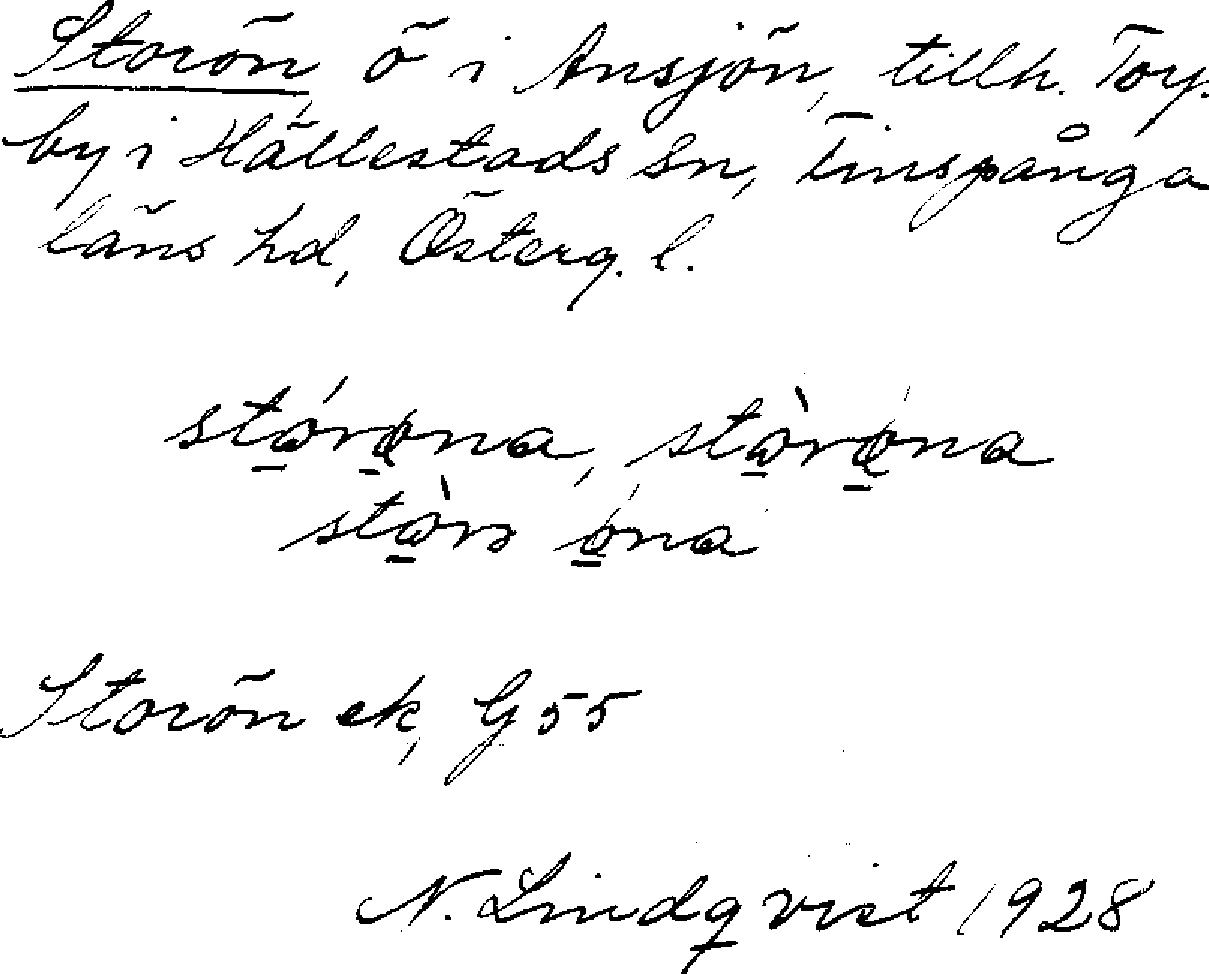 Storön, ö i Ansjön, tillh. Torp.
by i Hällestads sn, Finspånga
läns hd, Österg. l.
stórǿna, stòrǿna
stòra ǿna
Storön ek, G 55
N. Lindqvist 1928